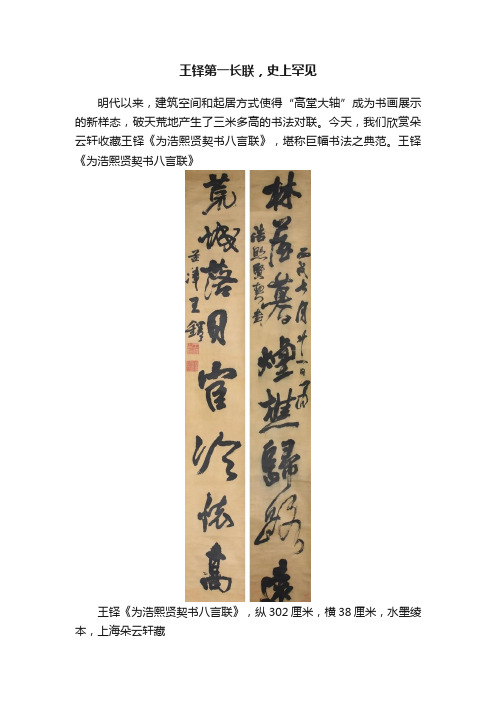 王铎第一长联，史上罕见
明代以来，建筑空间和起居方式使得“高堂大轴”成为书画展示
的新样态，破天荒地产生了三米多高的书法对联。今天，我们欣赏朵
云轩收藏王铎《为浩熙贤契书八言联》，堪称巨幅书法之典范。王铎
《为浩熙贤契书八言联》
丙戌七月廿一日為
林暮煙樵歸路
浩熙賢契書
荒城落日官冷懷高
孟津王鐸
王铎《为浩熙贤契书八言联》，纵302厘米，横38厘米，水墨绫
本，上海朵云轩藏